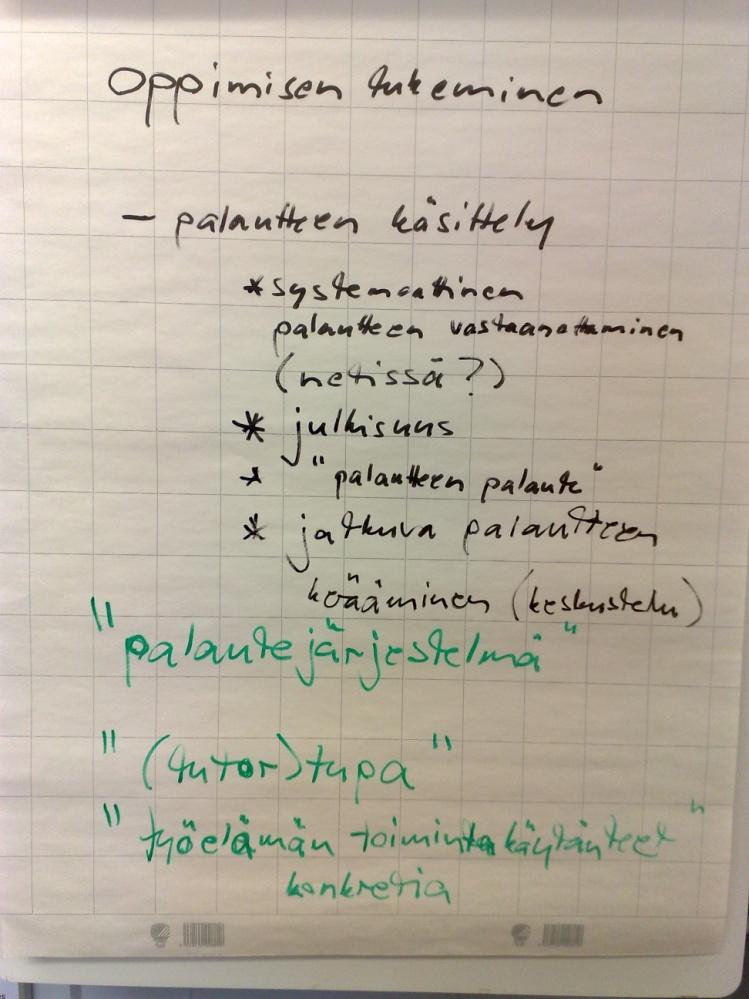 Oppimisen tukeminen
— palautteen käsittely
* systemaattinen
palautteen vastaanottaminen
(netissä?)
* julkisuus
* "palautteen palaute"
* jatkuva palautteen
koääminen (keskustelu)
"palautejärjestelmä"
"(tutor)tupa"
"työelämän toimintakäytänteet"
konkretia